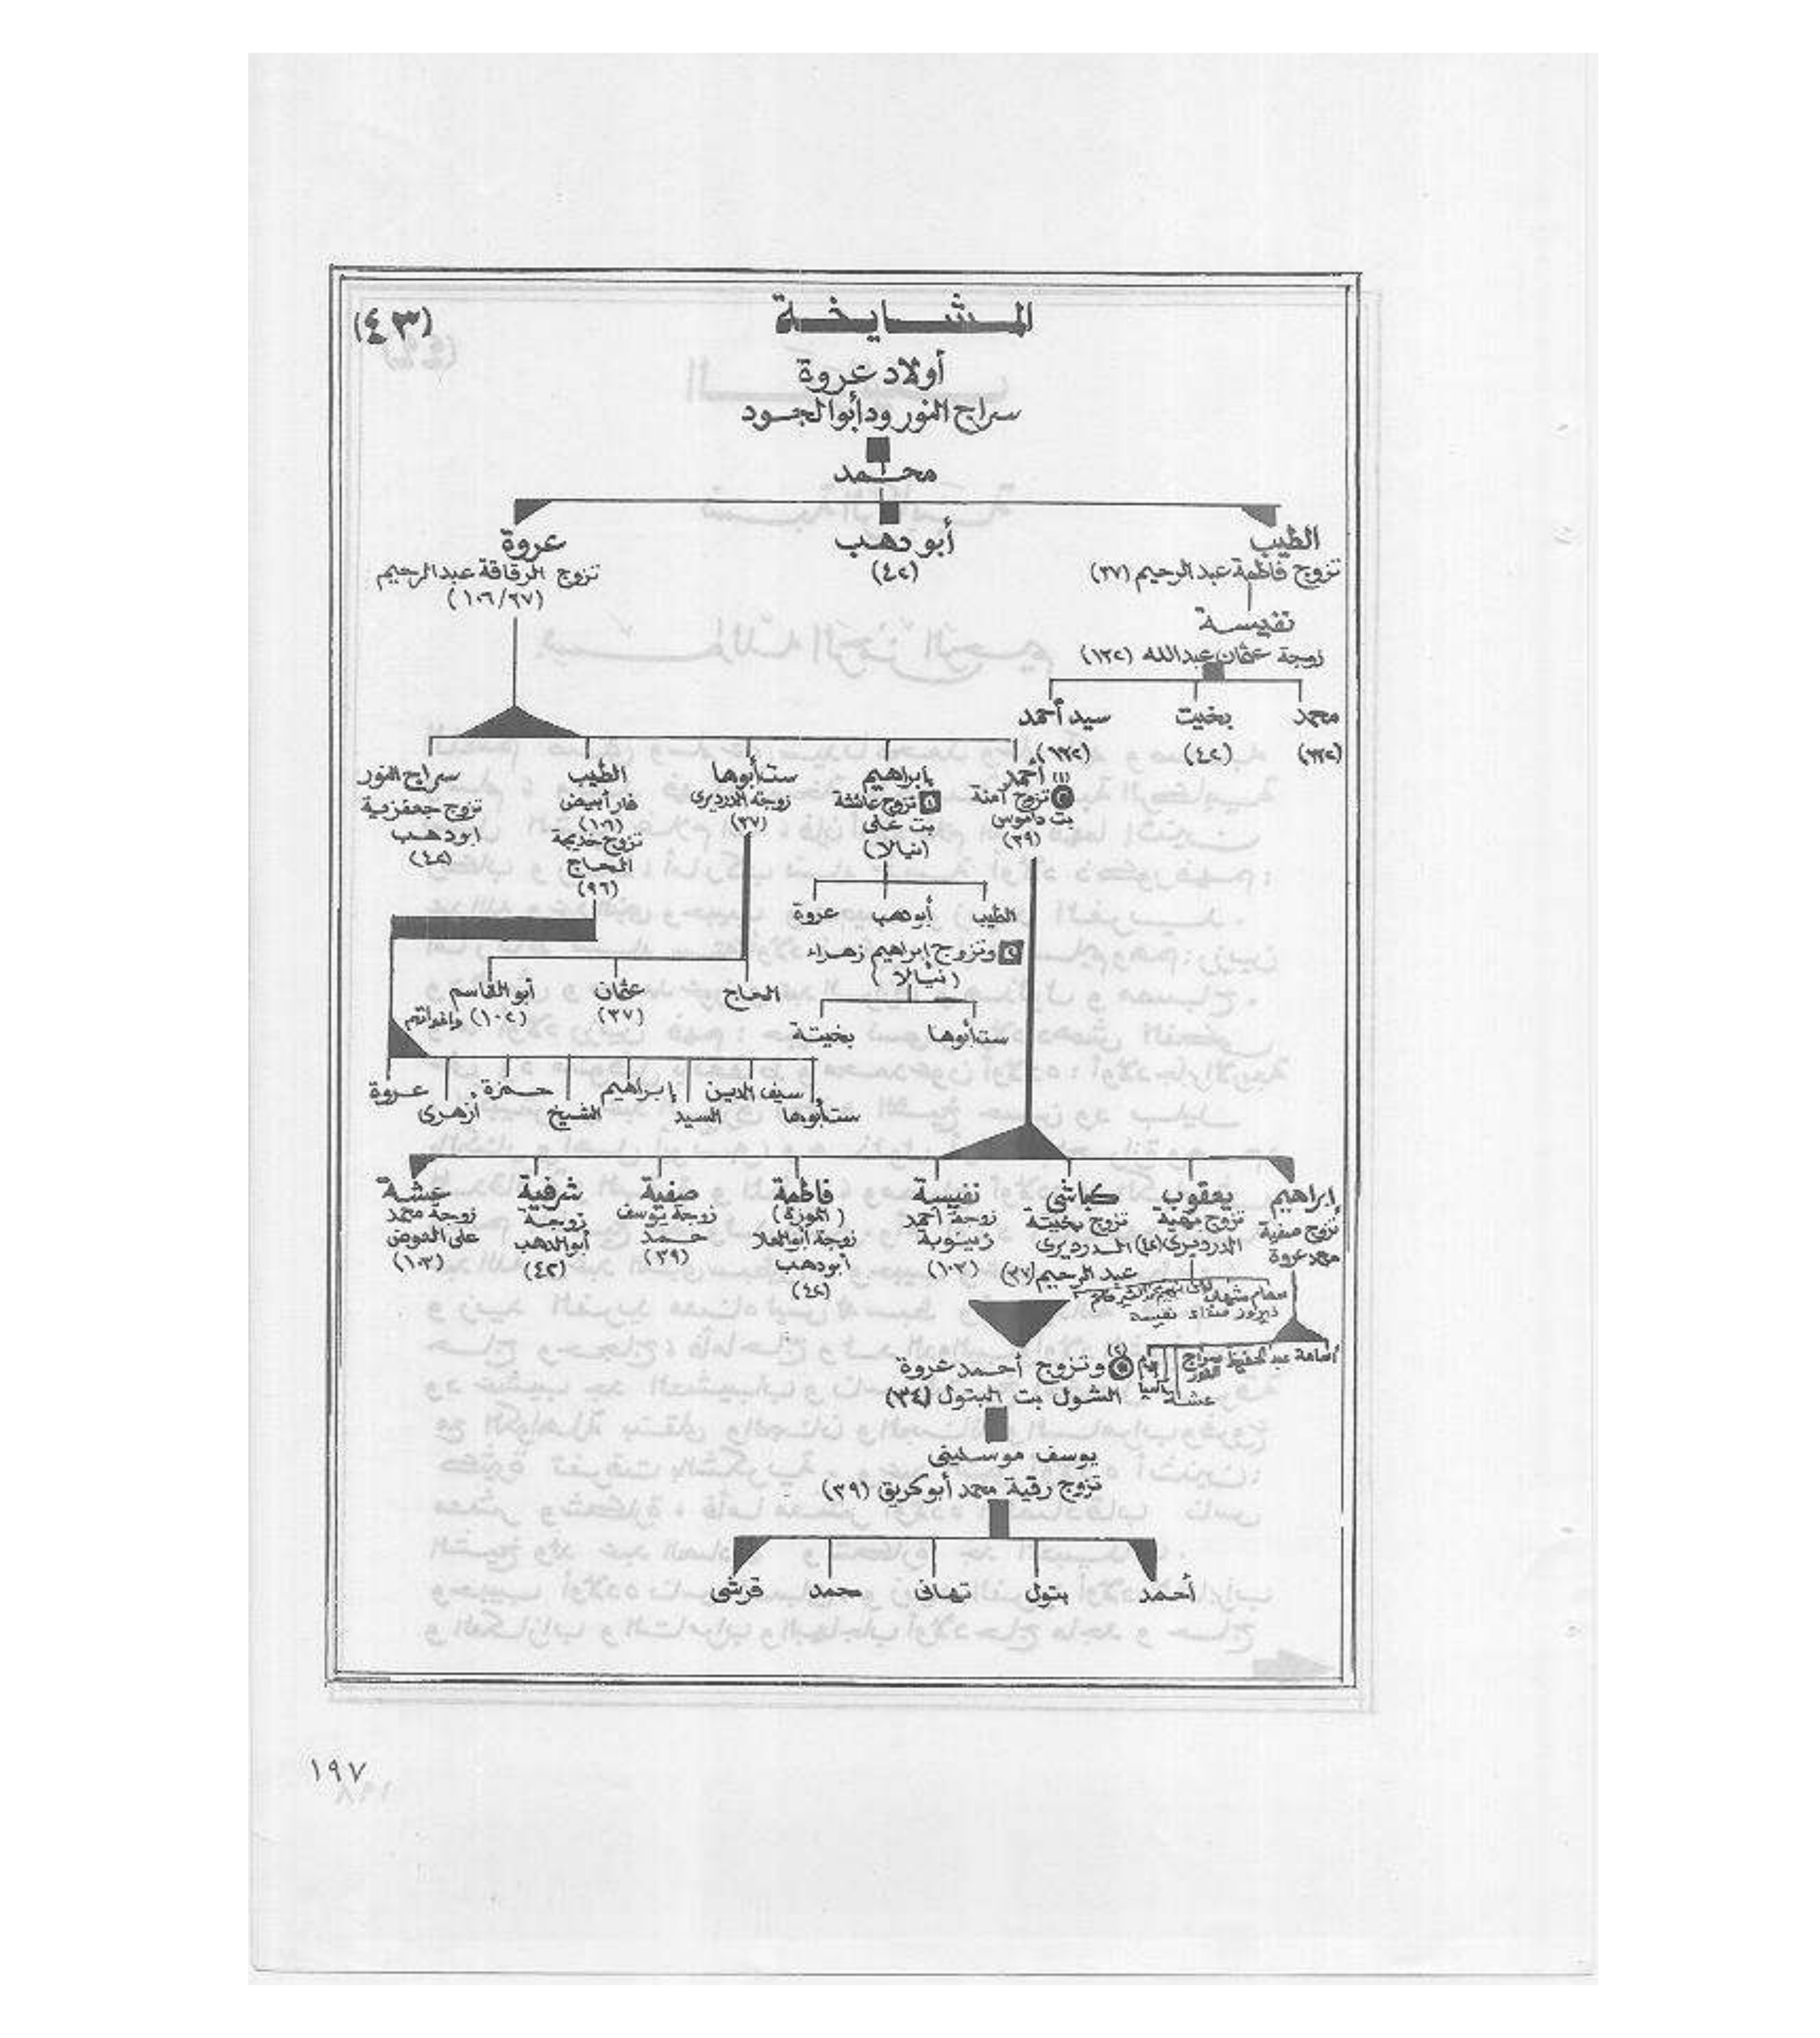 (٤٣)
المشايخة
أولاد عروة
سراج النور ود أبوالجود
محمد
الطيب
تزوج فاطمة عبدالرحيم (٣٧)
أبو دهب
(٤٢)
عروة
تزوج الرقاقة عبدالرحيم
نفيسة
زوجة عثمان عبدالله (١٣٢)
محمد
بخيت
(٤٢)
سيد أحمد
(١) أحمد
تزوج آمنة
بت داموس
(٣٩)
إبراهيم
١ تزوج عائشة
بت على
(نيالا)
ستأبوها
زوجة الدرديرى
(٣٧)
الطيب
فار أبيض
(١٦)
تزوج خديجة
الحاج
(٩٦)
سراج النور
تزوج جعفرية
ابودهب
(٤٢)
الطيب
أبودهب
عروة
٢ وتزوج إبراهيم زهراء
(نيالا)
ستأبوها
بخيتة
الحاج
عثمان
(٣٧)
أبو القاسم
(١٠٢) واخواتهم
عروة
أزهرى
حمزة
الشيخ
إبراهيم
السيد
سيف الدين
ستأبوها
إبراهيم
تزوج صفية
محمد عروة
يعقوب
تزوج مهية
الدرديرى (٤٢)
كباشى
تزوج بخيتة
الدرديرى
عبد الرحيم (٣٧)
نفيسة
زوجة أحمد
زينوبة
(١٠٣)
فاطمة
(الموزة)
زوجة أبوالعلا
أبودهب
(٤٢)
صفية
زوجة يوسف
حمد
(٣٩)
شرفية
زوجة
أبوالدهب
(٤٢)
عشة
زوجة محمد
على العوض
(١٠٣)
نفيسة
أسامة عبدالحفيظ سراج
النور
عشة
(٢) وتزوج أحمد عروة
الشول بت البتول (٣٤)
يوسف موسلينى
تزوج رقية محمد أبوكريق (٣٩)
أحمد
بتول
تهانى
حمد
قرشى
١٩٧